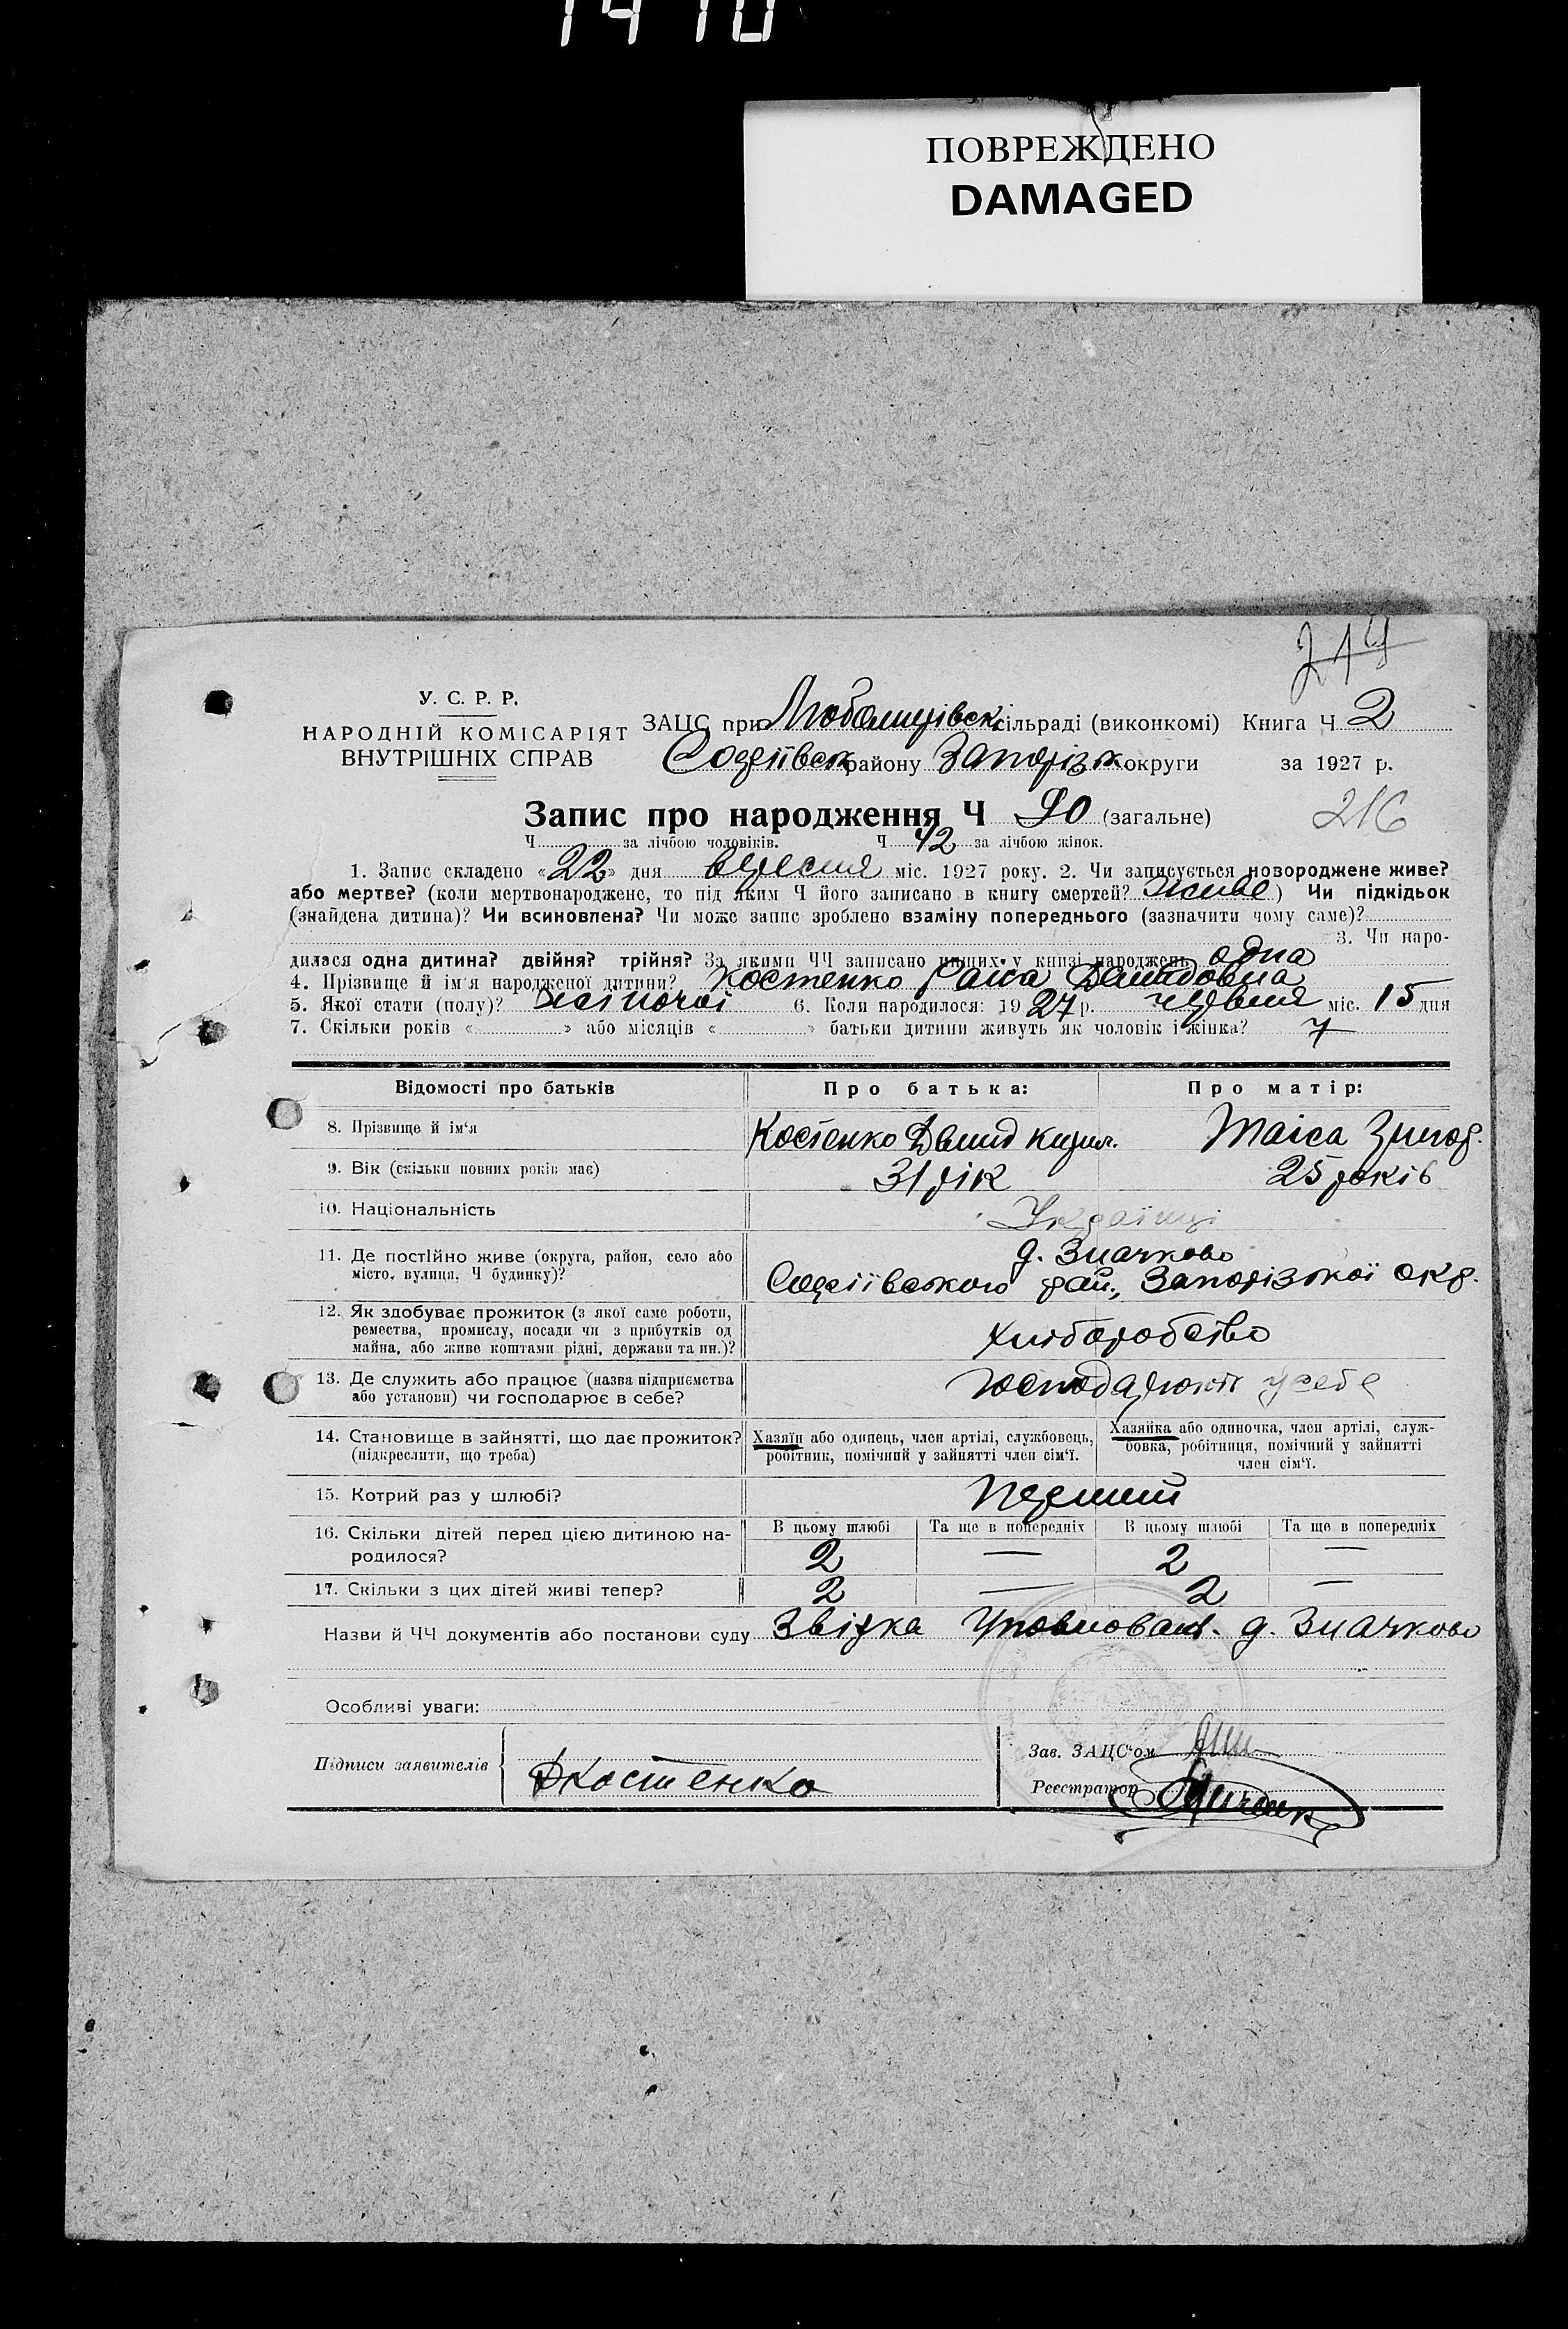 1410
ПОВРЕЖДЕНО
DAMAGED
214
У. С. Р. Р.
НАРОДНІЙ КОМІСАРІЯТ
ВНУТРІШНІХ СПРАВ
ЗАЦС при Любомирівск. сільраді (виконкомі) Книга Ч 2
Софіївськ району Запоріжж округи за 1927 р.
Запис про народження Ч 90 (загальне)
216
Ч за лічбою чоловіків. Ч 42 за лічбою жінок.
1. Запис складено «22» дня вересня міс. 1927 року. 2. Чи записується новороджене живе?
або мертве? (коли мертвонароджене, то під яким Ч його записано в книгу смертей? живе) Чи підкідьок
(знайдена дитина)? Чи всиновлена? Чи може запис зроблено взаміну попереднього (зазначити чому саме)?
3. Чи наро-
дилася одна дитина? двійня? трійня? За якими ЧЧ записано инших у книзі народжень одна
4. Прізвище й ім'я народженої дитини? Костенко Раїса Демидовна
5. Якої стати (полу)? жіночої 6. Коли народилося: 1927 р. червня міс. 15 дня
7. Скільки років « » або місяців « » батьки дитини живуть як чоловік і жінка? 7
Відомості про батьків Про батька: Про матір:
8. Прізвище й ім'я Костенко Демид Кирил. Таїса Григор.
9. Вік (скільки повних років має) 31 рік 25 років
10. Національність Українці
11. Де постійно живе (округа, район, село або
місто, вулиця, Ч будинку)?
д. Значково
Софіївського рай., Запорізької окр.
12. Як здобуває прожиток (з якої саме роботи,
ремества, промислу, посади чи з прибутків од
майна, або живе коштами рідні, держави та ин.)?
хліборобство
13. Де служить або працює (назва підприємства
або установи) чи господарює в себе?
господарюють у себе
14. Становище в зайнятті, що дає прожиток?
(підкреслити, що треба)
Хазяїн або одинець, член артілі, службовець,
робітник, помічний у зайнятті член сім'ї.
Хазяйка або одиночка, член артілі, служ-
бовка, робітниця, помічний у зайнятті
член сім'ї.
15. Котрий раз у шлюбі? Перший
16. Скільки дітей перед цією дитиною на-
родилося?
В цьому шлюбі Та ще в попередніх В цьому шлюбі Та ще в попередніх
2 — 2 —
17. Скільки з цих дітей живі тепер? 2 — 2 —
Назви й ЧЧ документів або постанови суду Звістка Уповноваж. д. Значково
Особливі уваги:
Підписи заявителів ДКостенко
Зав. ЗАЦС'ом
Реєстратор